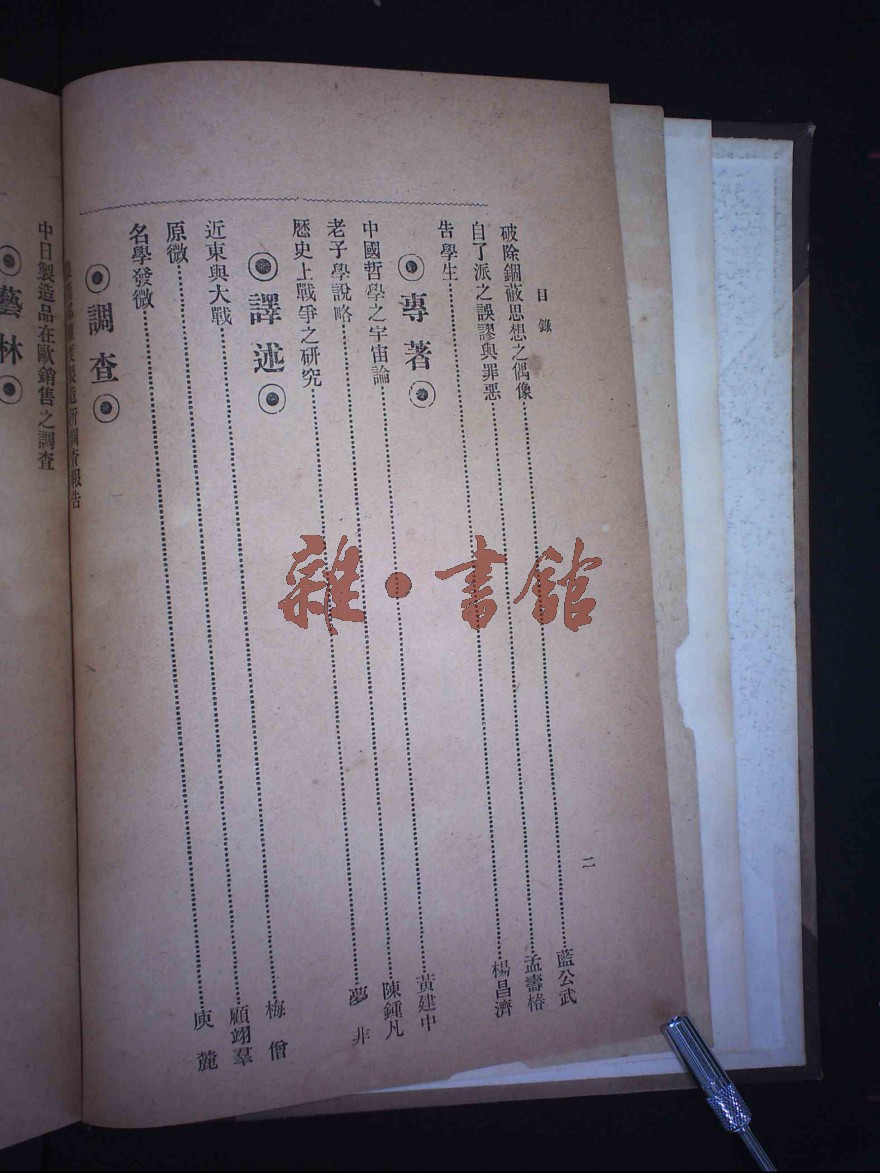 目錄
二
破除錮蔽思想之偶像 藍公武
自了派之誤謬與罪惡 孟壽椿
告學生 楊昌濟
專著
中國哲學之宇宙論 黃建中
老子學說略 陳鍾凡
歷史上戰爭之研究 夢非
譯述
近東與大戰 梅僧
原微 顧翊羣
名學發微 庾麓
調查
製造所調查報告
中日製造品在歐銷售之調查
藝林
雜·書館